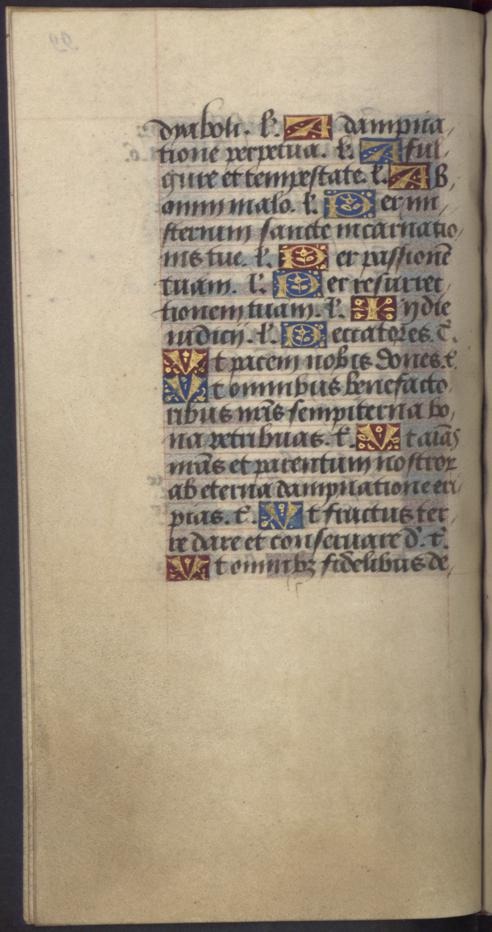 dyaboli. l'. A dampna
tione perpetua. l'. A ful
gure et tempestate. l'. A B
omni malo. l'. P er mi
sterium sancte incarnatio
nis tue. l'. P er passionē
tuam. l'. P er resurrec
tionem tuam. l'. I n die
iudicii. l'. P eccatores. t̄.
V t pacem nobis dones. t̄
V t omnibus benefacto
ribus nr̄is sempiterna bo
na retribuas. t̄. V t aīas
nr̄as et parentum nostror
ab eterna dampnatione eri
pias. t̄. V t fructus ter
re dare et conseruare d'. t̄.
V t omnibꝫ fidelibus de